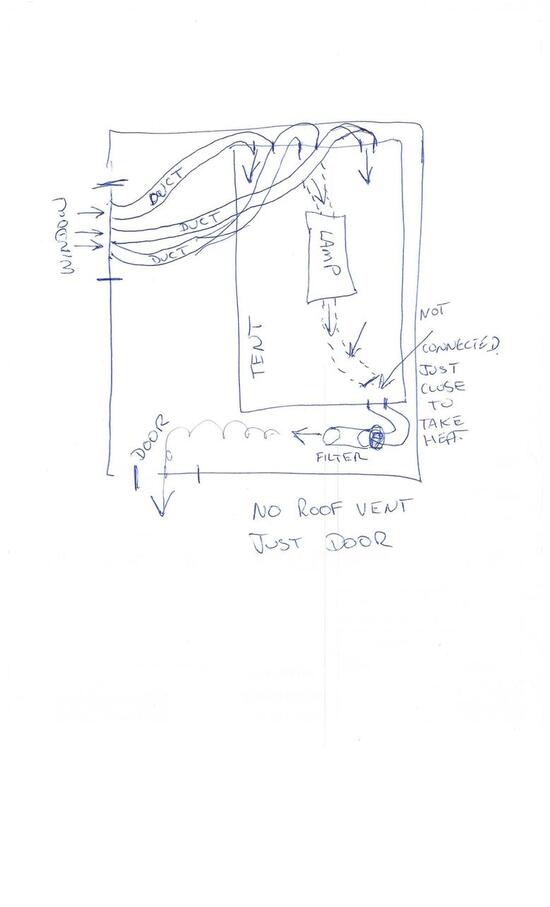 DUCT
DUCT
DUCT
WINDOW
LAMP
TENT
NOT
CONNECTED.
JUST
CLOSE
TO
TAKE
HEAT.
DOOR
FILTER
NO ROOF VENT
JUST DOOR